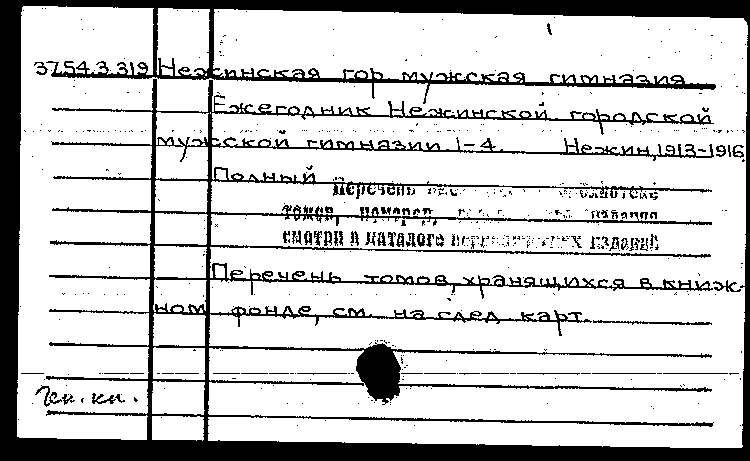 37.54.3.319 Нежинская гор. мужская гимназия.
Ежегодник Нежинской городской
мужской гимназии. 1-4. Нежин, 1913-1916
Полный
Перечень библиотеке
томов, номеров, издания
смотри в каталоге периодических изданий
Перечень томов, хранящихся в книж-
ном фонде, см. на след. карт.
Ген. кп.